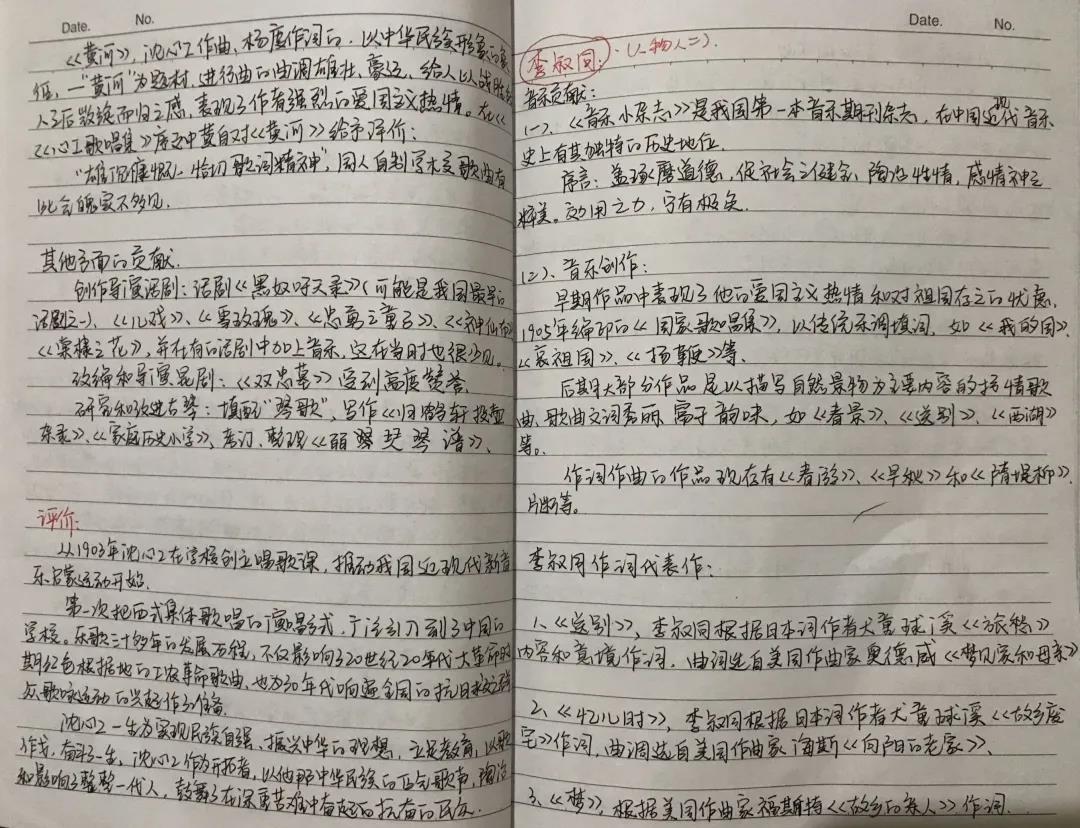 Date. No.
《黄河》，沈心工作曲、杨度作词的，以中华民族形象的象
征，—“黄河”为题材，进行曲的曲调雄壮、豪迈，给人以战胜
人了后凯旋而归之感，表现了作者强烈的爱国主义热情。在《
《心工歌唱集》序之中黄自对《黄河》给予评价：
“雄沉慷慨，恰切歌词精神”，国人自制学校歌曲有
此气魄实不多见.
其他方面的贡献.
创作导演话剧：话剧《黑奴吁天录》（可能是我国最早的
话剧之一）、《儿戏》、《雪玫瑰》、《忠勇之童子》、《神仙
《棠棣之花》，并在有的话剧中加上音乐，这在当时也很少见.
改编和导演昆剧：《双忠墓》受到高度赞誉.
研究和改进古琴：填配“琴歌”，写作《归鹤轩投壶
杂录》、《家庭历史小学》，考订、整理《
琴谱》、
评价：
从1903年沈心工在学校创立唱歌课，推动我国近现代新音
乐启蒙运动开始.
第一次把西式集体歌唱的演唱形式，广泛引入到了中国的
学校。乐歌三十多年的发展历程，不仅影响了20世纪20年代大革命时
期红色根据地的工农革命歌曲，也为30年代响遍全国的抗日救亡群
众歌咏运动的兴起作了准备.
沈心工一生为实现民族自强、振兴中华的理想，立足教育，以歌
作戈，奋斗一生，沈心工作为开拓者，以他那中华民族的正气歌声，陶冶
和影响了整整一代人，鼓舞了在深重苦难中奋起的抗奋的民众.
Date. No.
李叔同：（人物人二）.
音乐贡献：
（一）、《音乐小杂志》是我国第一本音乐期刊杂志，在中国近现代音乐
史上有其独特的历史地位.
序言：盖琢磨道德，促社会之健全，陶冶性情，感情神之
粹美。效用之力，宁有极矣.
（2）、音乐创作：
早期作品中表现了他的爱国主义热情和对祖国存亡的忧虑，
1905年编印的《国学歌唱集》，以传统乐调填词，如《我的国》、
《哀祖国》、《扬鞭》等、
后期大部分作品是以描写自然景物为主要内容的抒情歌
曲、歌曲文词秀丽、富于韵味，如《春景》、《送别》、《西湖》
等。
作词作曲的作品现存有《春游》、《早秋》和《隋堤柳》
片断等。
李叔同作词代表作：
1、《送别》，李叔同根据日本词作者犬童球溪《旅愁》
内容和意境作词，曲词选自美国作曲家奥德威《梦见家和母亲》
2、《忆儿时》，李叔同根据日本词作者犬童球溪《故乡废
宅》作词，曲调选自美国作曲家海斯《向阳的老家》、
3、《梦》，根据美国作曲家福斯特《故乡的亲人》作词.